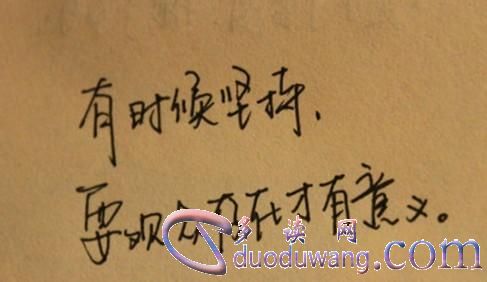 有时候坚持,
要观众存在才有意义。
多读网
duoduwang.com